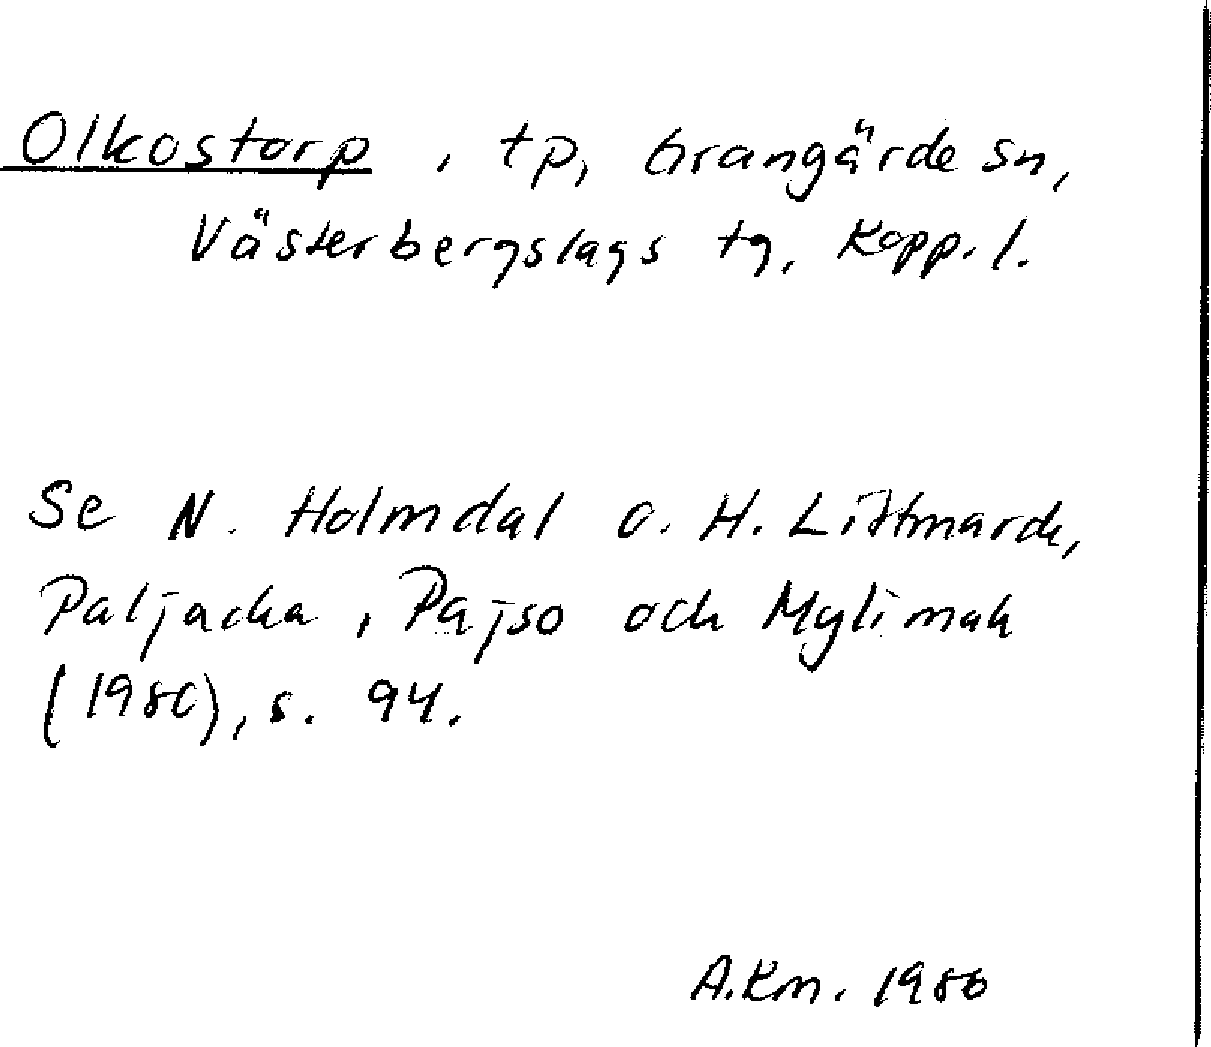 Olkostorp, tp, Grangärde sn,
Västerbergslags tg, Kopp. l.
Se N. Holmdal o. H. Littmarck,
Paljacka, Pajso och Mylimak
(1980), s. 94.
A.Km. 1986